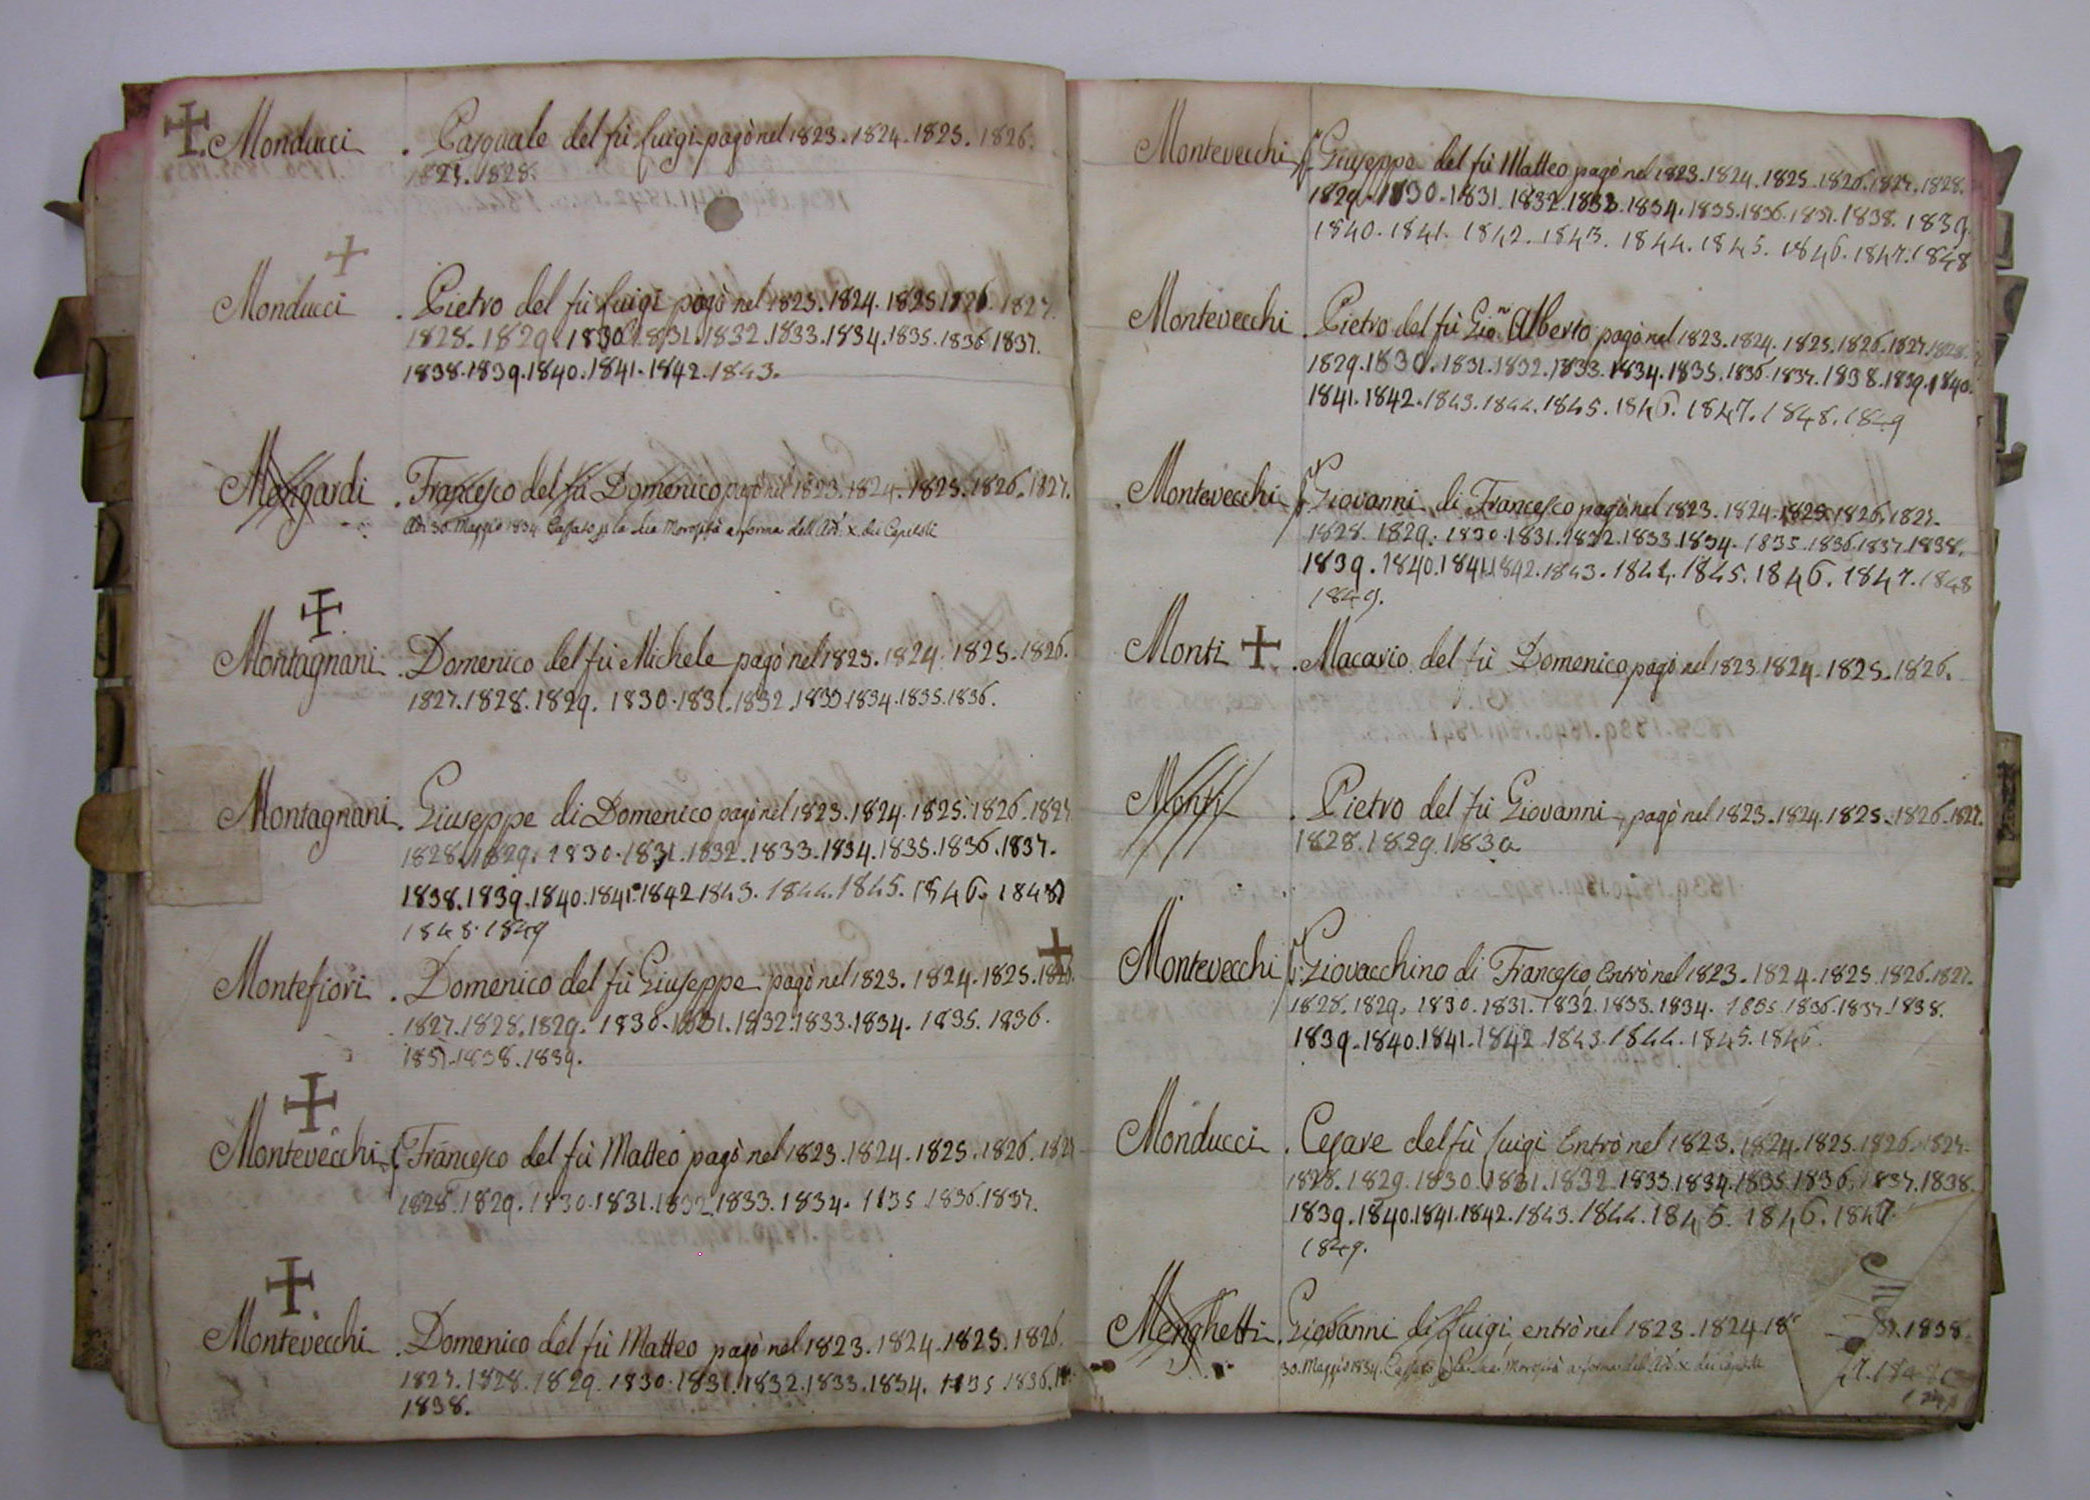 Monducci . Pasquale del fù Luigi pagò nel 1823. 1824. 1825. 1826.
1827. 1828.
Monducci . Pietro del fù Luigi pagò nel 1823. 1824. 1825 1826. 1827.
1828. 1829. 1830. 1831. 1832. 1833. 1834. 1835. 1836 1837.
1838. 1839. 1840. 1841. 1842. 1843.
Mongardi . Francesco del fù Domenico pagò nel 1823. 1824. 1825. 1826. 1827.
Adì 30. Maggio 1834. Cassato p la sua Morosità a forma dell'Art. X. dei Capitoli
Montagnani . Domenico del fù Michele pagò nel 1823. 1824. 1825. 1826.
1827. 1828. 1829. 1830. 1831. 1832. 1833. 1834. 1835. 1836.
Montagnani . Giuseppe di Domenico pagò nel 1823. 1824. 1825. 1826. 1827
1828. 1829. 1830. 1831. 1832. 1833. 1834. 1835. 1836. 1837.
1838. 1839. 1840. 1841. 1842 1843. 1844. 1845. 1846.
1848. 1849
Montefiori . Domenico del fù Giuseppe pagò nel 1823. 1824. 1825. 1826.
1827. 1828. 1829. 1830. 1831. 1832. 1833. 1834. 1835. 1836.
1837. 1838. 1839.
Montevecchi Francesco del fù Matteo pagò nel 1823. 1824. 1825. 1826. 1827
1828. 1829. 1830. 1831. 1832. 1833. 1834. 1835. 1836. 1837.
Montevecchi . Domenico del fù Matteo pagò nel 1823. 1824. 1825. 1826.
1827. 1828. 1829. 1830. 1831. 1832. 1833. 1834. 1835. 1836.
1838.
Montevecchi Giuseppe del fù Matteo pagò nel 1823. 1824. 1825. 1826. 1827. 1828.
1829. 1830. 1831. 1832. 1833. 1834. 1835. 1836. 1837. 1838. 1839.
1840. 1841. 1842. 1843. 1844. 1845. 1846. 1847. 1848
Montevecchi . Pietro del fù Gio. Alberto pagò nel 1823. 1824. 1825. 1826. 1827. 1828.
1829. 1830. 1831. 1832. 1833. 1834. 1835. 1836. 1837. 1838. 1839. 1840.
1841. 1842. 1843. 1844. 1845. 1846. 1847. 1848. 1849
Montevecchi Giovanni di Francesco pagò nel 1823. 1824. 1825. 1826. 1827.
1828. 1829. 1830. 1831. 1832. 1833. 1834. 1835. 1836. 1837. 1838.
1839. 1840. 1841. 1842. 1843. 1844. 1845. 1846. 1847. 1848
1849.
Monti . Macario del fù Domenico pagò nel 1823. 1824. 1825. 1826.
Monti . Pietro del fù Giovanni pagò nel 1823. 1824. 1825. 1826. 1827.
1828. 1829. 1830.
Montevecchi Giovacchino di Francesco Entrò nel 1823. 1824. 1825. 1826. 1827.
1828. 1829. 1830. 1831. 1832. 1833. 1834. 1835. 1836. 1837. 1838.
1839. 1840. 1841. 1842. 1843. 1844. 1845. 1846.
Monducci . Cesare del fù Luigi Entrò nel 1823. 1824. 1825. 1826. 1827.
1828. 1829. 1830. 1831. 1832. 1833. 1834. 1835. 1836. 1837. 1838.
1839. 1840. 1841. 1842. 1843. 1844. 1845. 1846. 1847.
1849.
Menghetti . Giovanni di Luigi entrò nel 1823. 1824
30. Maggio 1834. Cassato p la sua Morosità a forma dell'Art. X. dei Capitoli
1838.